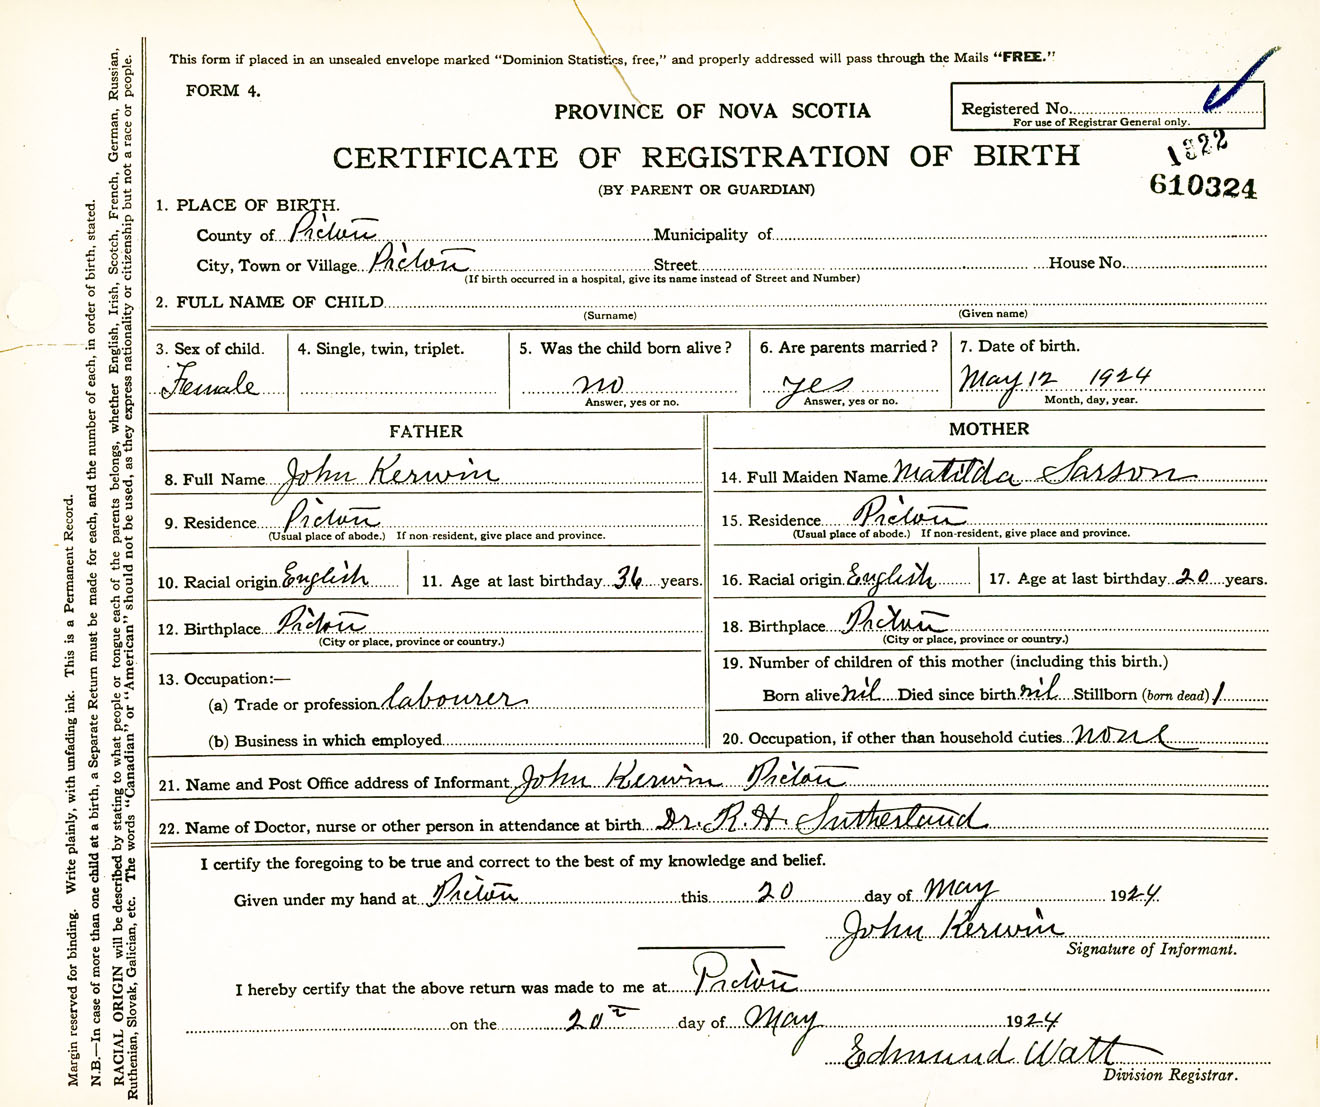 This form if placed in an unsealed envelope marked "Dominion Statistics, free," and properly addressed will pass through the Mails "FREE."
FORM 4.
PROVINCE OF NOVA SCOTIA
Registered No.
For use of Registrar General only.
CERTIFICATE OF REGISTRATION OF BIRTH
1322
(BY PARENT OR GUARDIAN)
610324
1. PLACE OF BIRTH.
County of Pictou Municipality of
City, Town or Village Pictou Street House No.
(If birth occurred in a hospital, give its name instead of Street and Number)
2. FULL NAME OF CHILD
(Surname) (Given name)
3. Sex of child. 4. Single, twin, triplet. 5. Was the child born alive? 6. Are parents married? 7. Date of birth.
Female no yes May 12 1924
Answer, yes or no. Answer, yes or no. Month, day, year.
FATHER MOTHER
8. Full Name John Kerwin 14. Full Maiden Name Matilda Sarson
9. Residence Pictou 15. Residence Pictou
(Usual place of abode.) If non-resident, give place and province. (Usual place of abode.) If non-resident, give place and province.
10. Racial origin English 11. Age at last birthday 36 years. 16. Racial origin English 17. Age at last birthday 20 years.
12. Birthplace Pictou 18. Birthplace Pictou
(City or place, province or country.) (City or place, province or country.)
19. Number of children of this mother (including this birth.)
13. Occupation:—
(a) Trade or profession labourer Born alive nil Died since birth nil Stillborn (born dead) 1
(b) Business in which employed 20. Occupation, if other than household duties none
21. Name and Post Office address of Informant John Kerwin Pictou
22. Name of Doctor, nurse or other person in attendance at birth Dr. R. H. Sutherland
I certify the foregoing to be true and correct to the best of my knowledge and belief.
Given under my hand at Pictou this 20 day of May 1924
John Kerwin
Signature of Informant.
I hereby certify that the above return was made to me at Pictou
on the 20th day of May 1924
Edmund Watt
Division Registrar.
Margin reserved for binding. Write plainly, with unfading ink. This is a Permanent Record.
N.B.—In case of more than one child at a birth, a Separate Return must be made for each, and the number of each, in order of birth, stated.
RACIAL ORIGIN will be described by stating to what people or tongue each of the parents belongs, whether English, Irish, Scotch, French, German, Russian,
Ruthenian, Slovak, Galician, etc. The words "Canadian" or "American" should not be used, as they express nationality or citizenship but not a race or people.